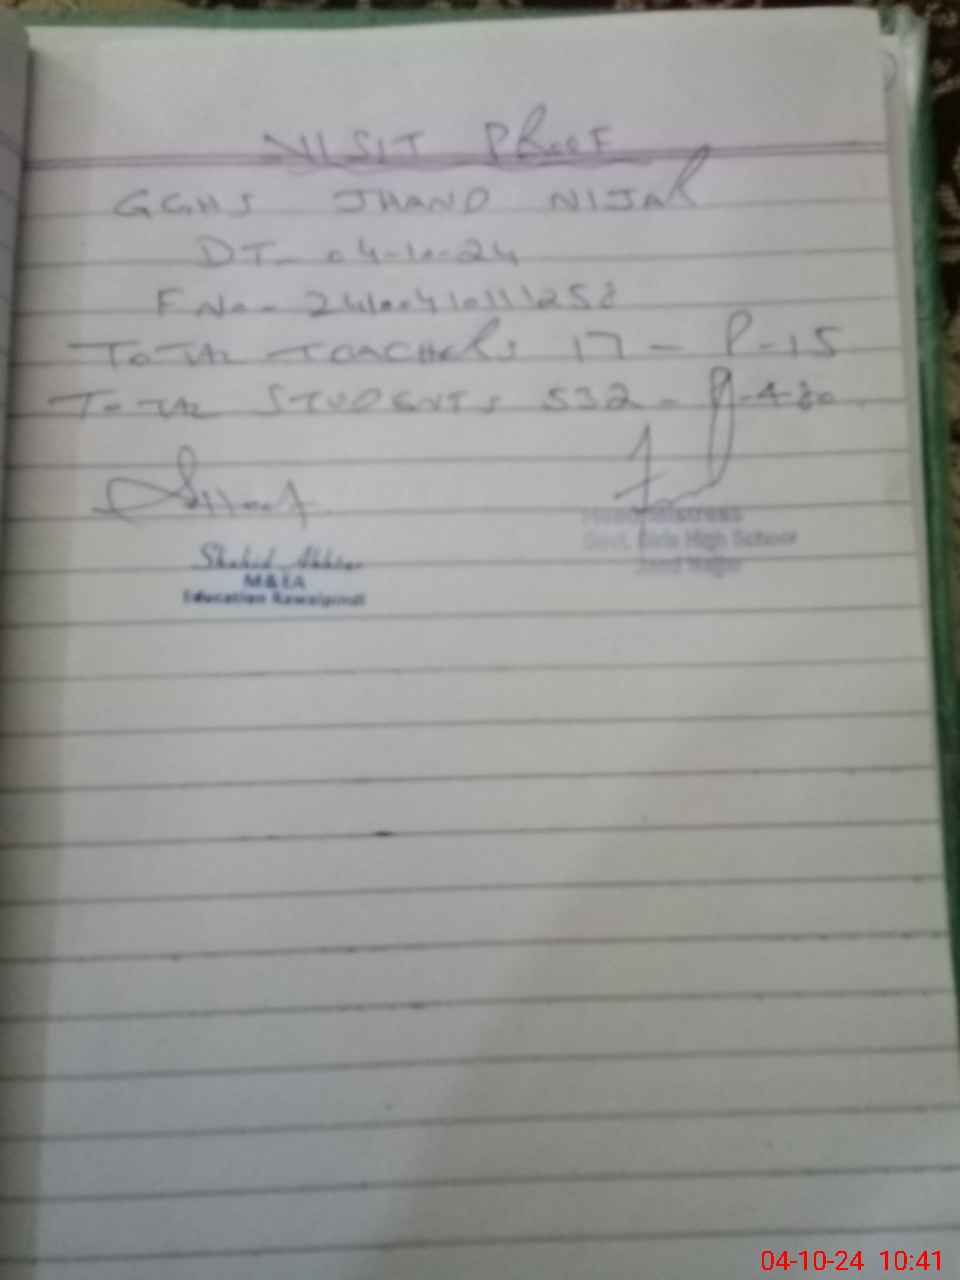 VISIT PROOF
GGHS JHAND NIJAR
DT- 04-10-24
F No- 
TOTAL TEACHERS 17 - P-15
TOTAL STUDENTS 532 - P-480
Shahid Akhtar
M&EA
Education Rawalpindi
Headmistress
Govt. Girls High School
04-10-24 10:41